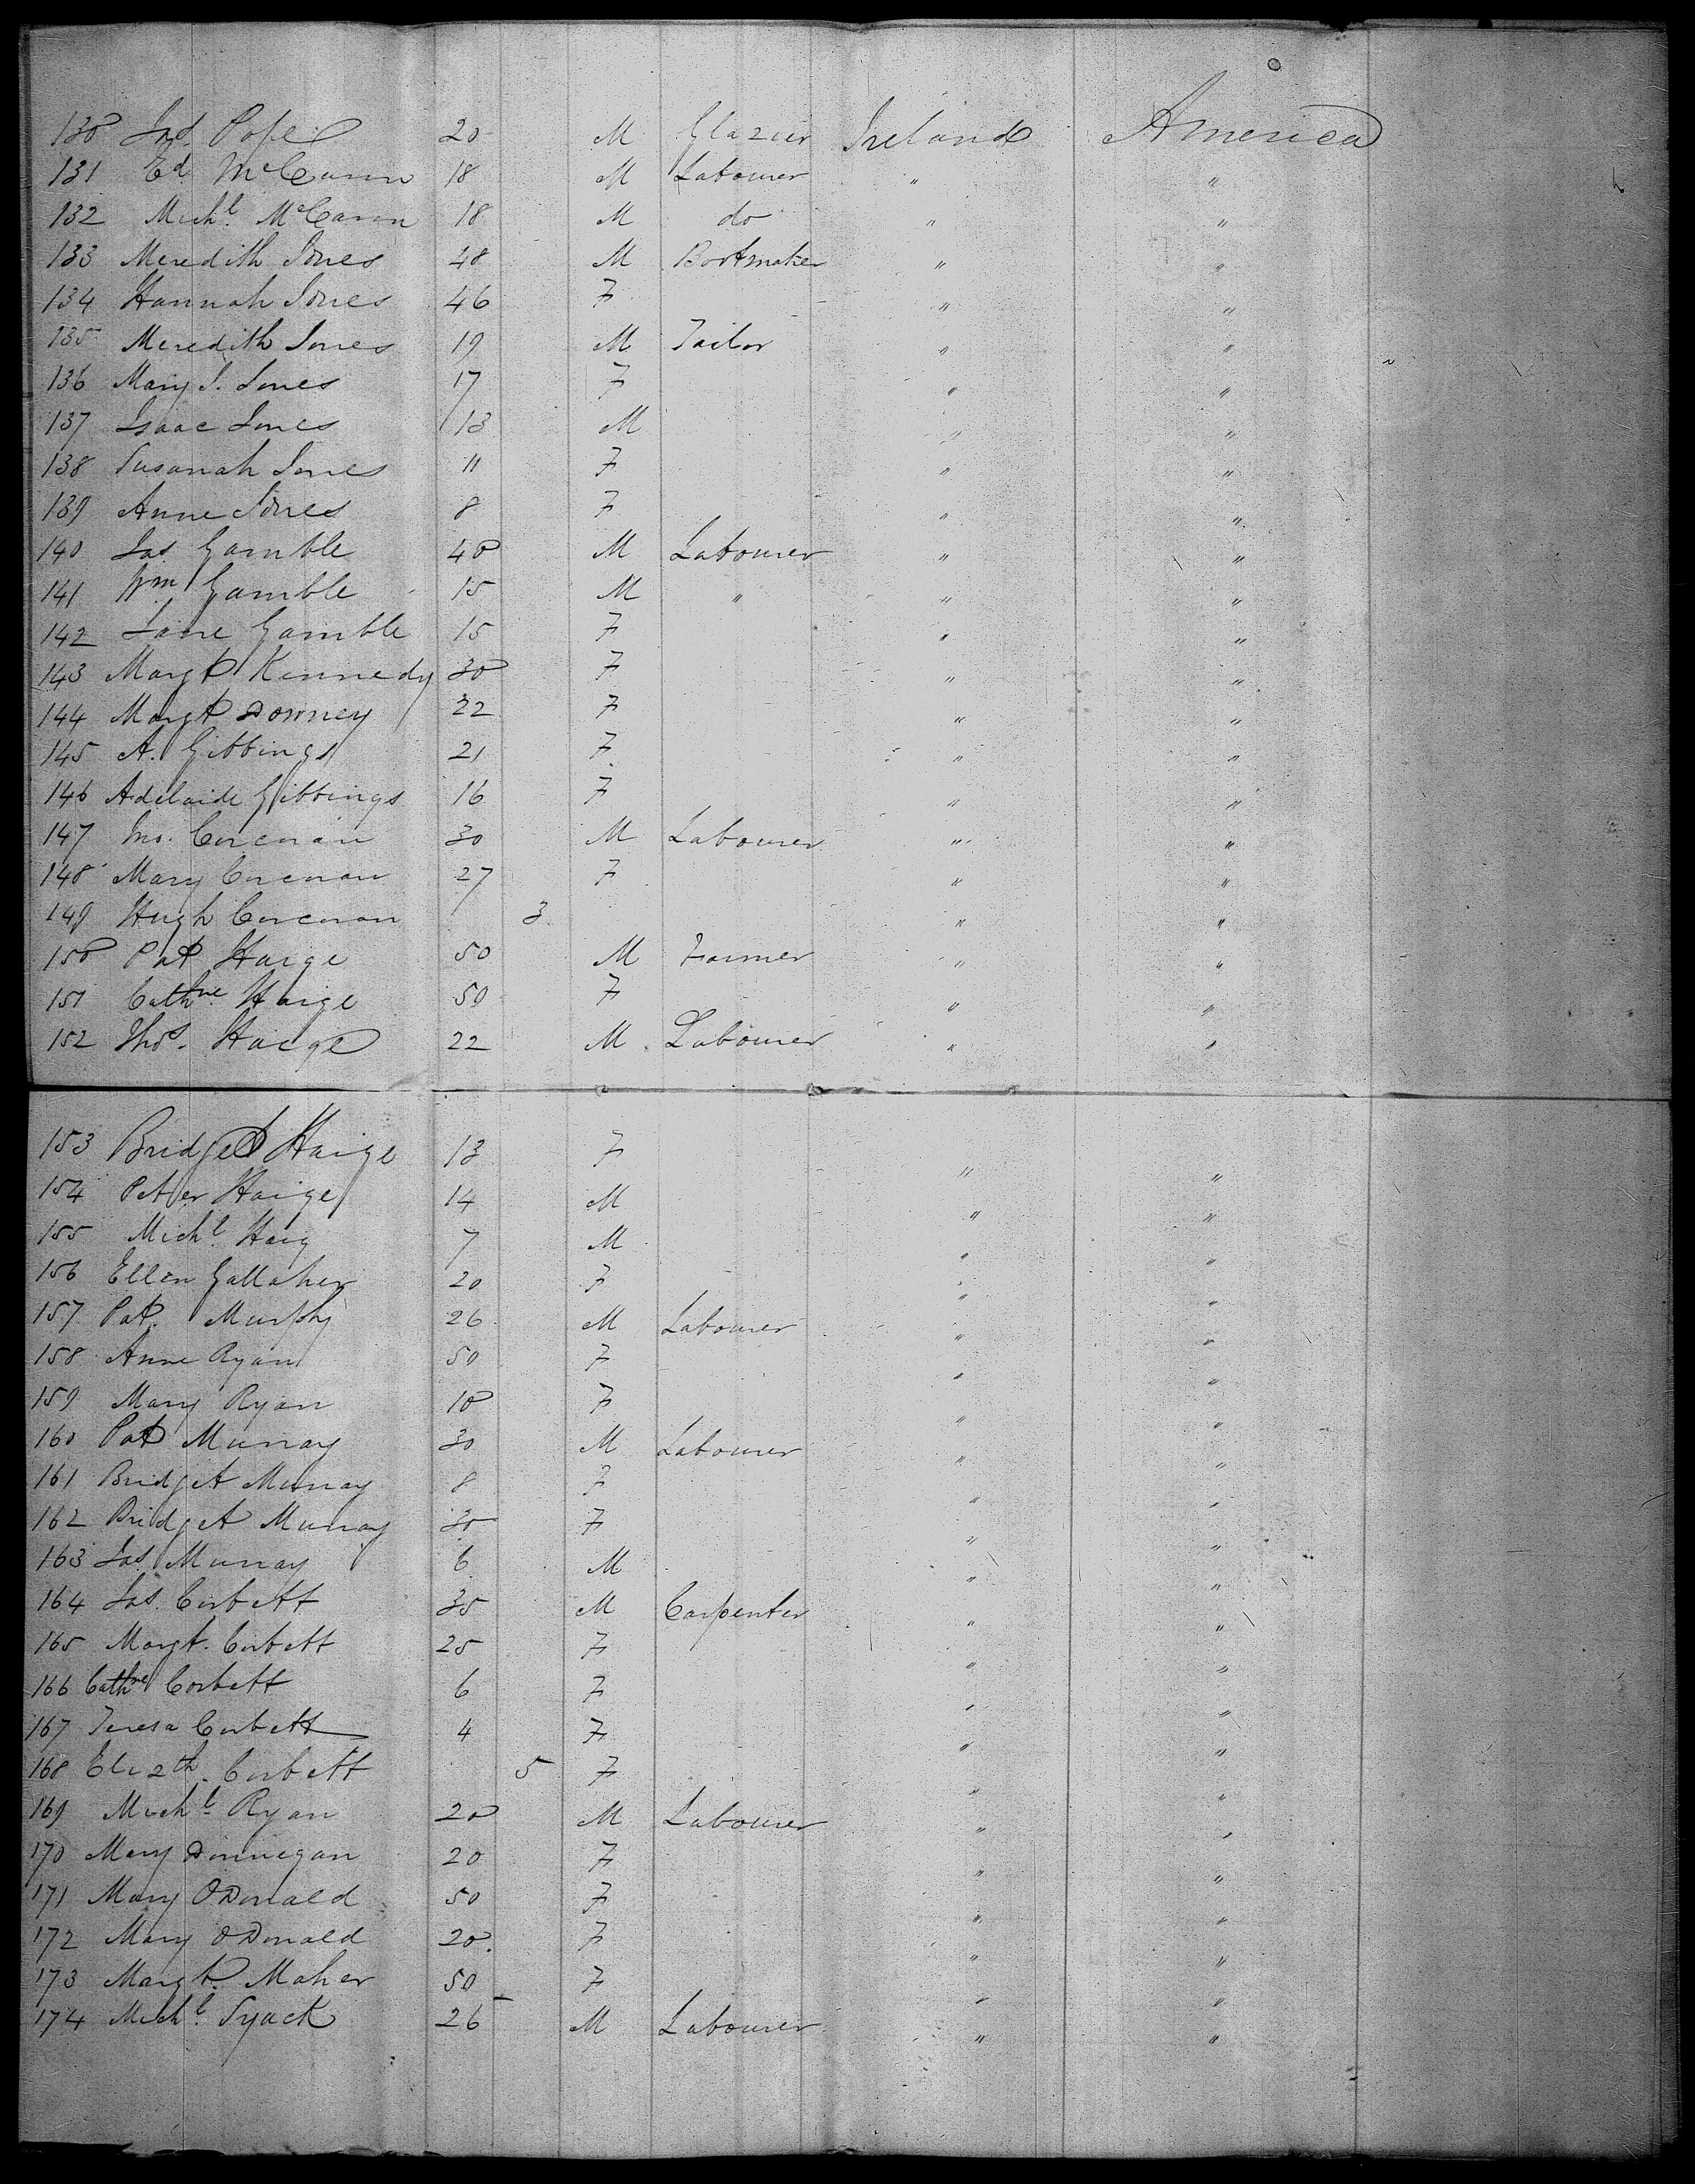 130 Jas. Pope 20 M Glazier Ireland America
131 Ed McCann 18 M Labourer " "
132 Michl. McCann 18 M do " "
133 Meredith Jones 48 M Bootmaker " "
134 Hannah Jones 46 F " "
135 Meredith Jones 19 M Tailor " "
136 Mary J. Jones 17 F " "
137 Isaac Jones 13 M " "
138 Susanah Jones 11 F " "
139 Anne Jones 8 F " "
140 Jas Gamble 40 M Labourer " "
141 Wm Gamble 15 M " " "
142 Jane Gamble 15 F " "
143 Margt Kennedy 30 F " "
144 Margt Downey 22 F " "
145 A. Gibbings 21 F " "
146 Adelaide Gibbings 16 F " "
147 Jno. Corcoran 30 M Labourer " "
148 Mary Corcoran 27 F " "
149 Hugh Corcoran 3 " "
150 Pat Haige 50 M Farmer " "
151 Cathne Haige 50 F " "
152 Thos. Haige 22 M Labourer " "
153 Bridget Haige 13 F " "
154 Peter Haige 14 M " "
155 Michl. Haig 7 M " "
156 Ellen Gallaher 20 F " "
157 Pat. Murphy 26 M Labourer " "
158 Anne Ryan 50 F " "
159 Mary Ryan 10 F " "
160 Pat Murray 30 M Labourer " "
161 Bridget Murray 8 F " "
162 Bridget Murray 30 F " "
163 Jas. Murray 6 M " "
164 Jas. Corbett 35 M Carpenter " "
165 Margt. Corbett 25 F " "
166 Cathne Corbett 6 F " "
167 Teresa Corbett 4 F " "
168 Elizth. Corbett 5 F " "
169 Michl. Ryan 20 M Labourer " "
170 Mary Dinnegan 20 F " "
171 Mary ODonald 50 F " "
172 Mary ODonald 20 F " "
173 Margt. Maher 50 F " "
174 Michl. 26 M Labourer " "